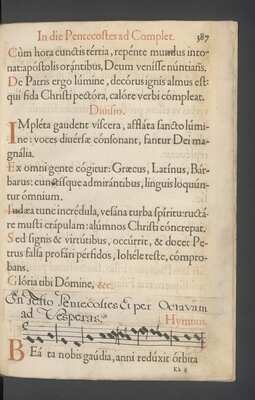 In die Pentecostes ad Complet. 387
Cùm hora cunctis tértia, repénte mundus into-
nat: apóstolis orántibus, Deum veníſſe núntians.
De Patris ergo lúmine, decórus ignis almus eſt:
qui fida Chriſti pectóra, calóre verbi cómpleat.
Diuiſio.
IMpléta gaudent víſcera, afflàta ſancto lúmi-
ne: voces diuérſæ cónſonant, fantur Dei ma-
gnália.
Ex omni gente cógitur: Græcus, Latínus, Bár-
barus: cunctíſque admirántibus, linguis loquún-
tur ómnium.
Iudæa tunc incrédula, veſána turba ſpíritu: ructá-
re muſti crápulam: alúmnos Chriſti cóncrepat.
Sed ſignis & virtútibus, occúrrit, & docet Pe-
trus falſa profári pérfidos, Iohéle teſte, cómpro-
bans.
Glória tibi Dómine, &c.
In Festo Pentecostes Et per Octavam
ad Vesperas.
Hymnus.
BEáta nobis gaúdia, anni redúxit órbita